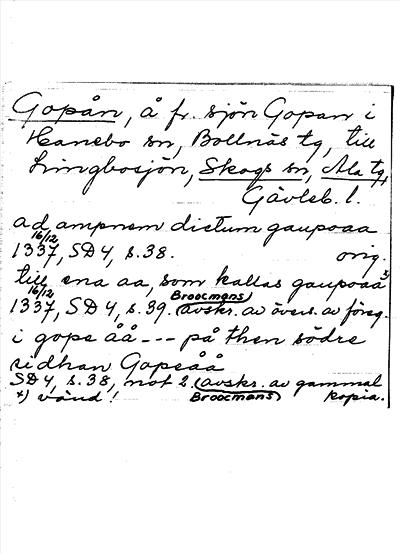 Gopån, å fr. sjön Gopan i
Hanebo sn, Bollnäs tg, till
Lingbosjön, Skogs sn, Ala tg,
Gävleb. l.
ad ampnem dictum gaupoaa
16/12
1337, SD 4, s. 38. orig.
till ena aa, som kallas gaupoaa x)
16/12 Broocmans
1337, SD 4, s. 39. (avskr. av övers. av föreg.
i gope åå --- på then södre
sidhan Gopeåå
SD 4, s. 38, not 2. (avskr. av gammal
x) vänd! Broocmans) kopia.